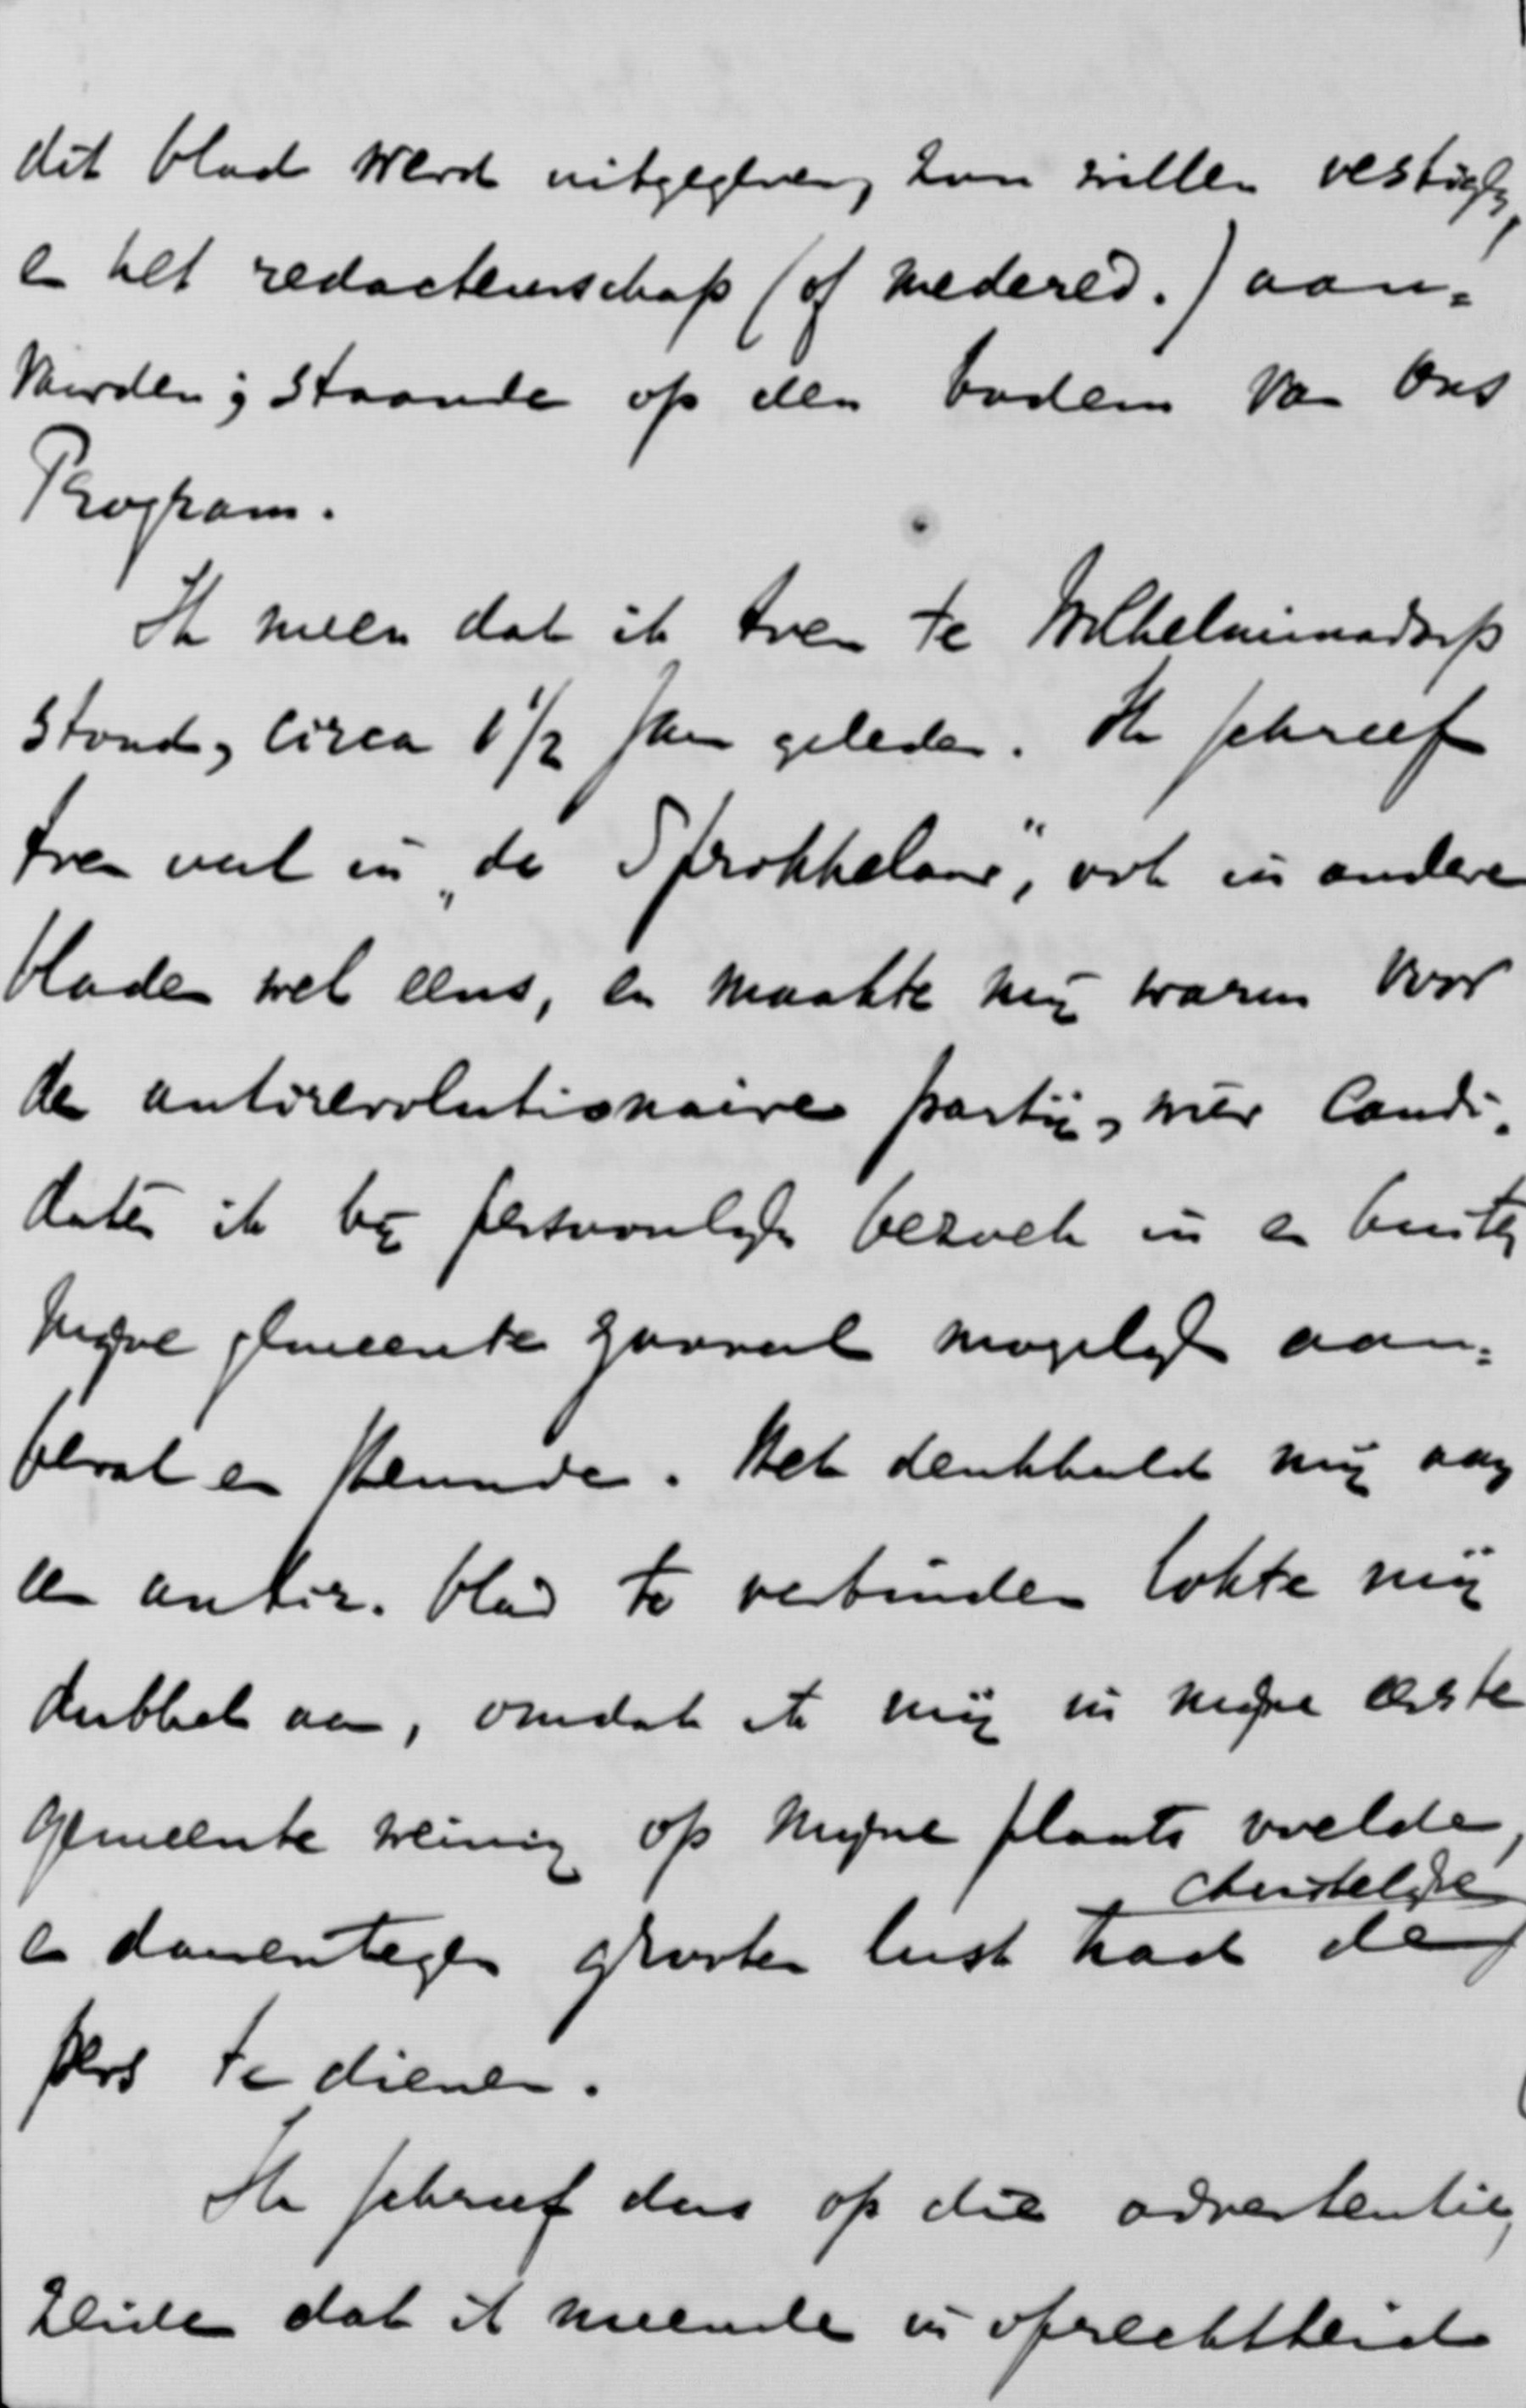 dit blad werd uitgegeven, zou willen vestigen,
en het redacteurschap (of medered.) aan=
vaarden; staande op den bodem van Ons
Program.
Ik meen dat ik toen te Wilhelminadorp
stond, circa 1 1/2 jaar geleden. Ik schreef
toen veel in „de Sprokkelaar", ook in andere
bladen wel eens, en maakte mij warm voor
de antirevolutionaire partij, wier candi=
daten ik bij persoonlijk bezoek in en buiten
mijne gemeente zooveel mogelijk aan=
beval en steunde. Het denkbeeld mij aan
een antir. blad te verbinden lokte mij
dubbel aan, omdat ik mij in mijne eerste
gemeente weinig op mijne plaats voelde,
en daarentegen grooten lust had de christelijke
pers te dienen.
Ik schreef dus op die advertentie,
zeide dat ik meende in oprechtheid